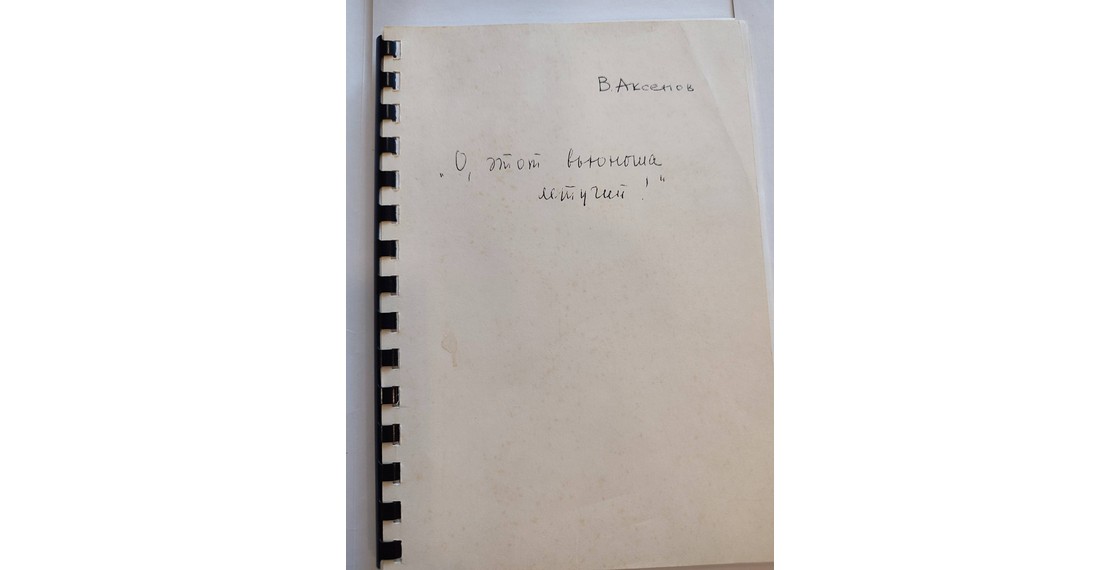 В. Аксенов
„О, этот вьюноша
летучий!“